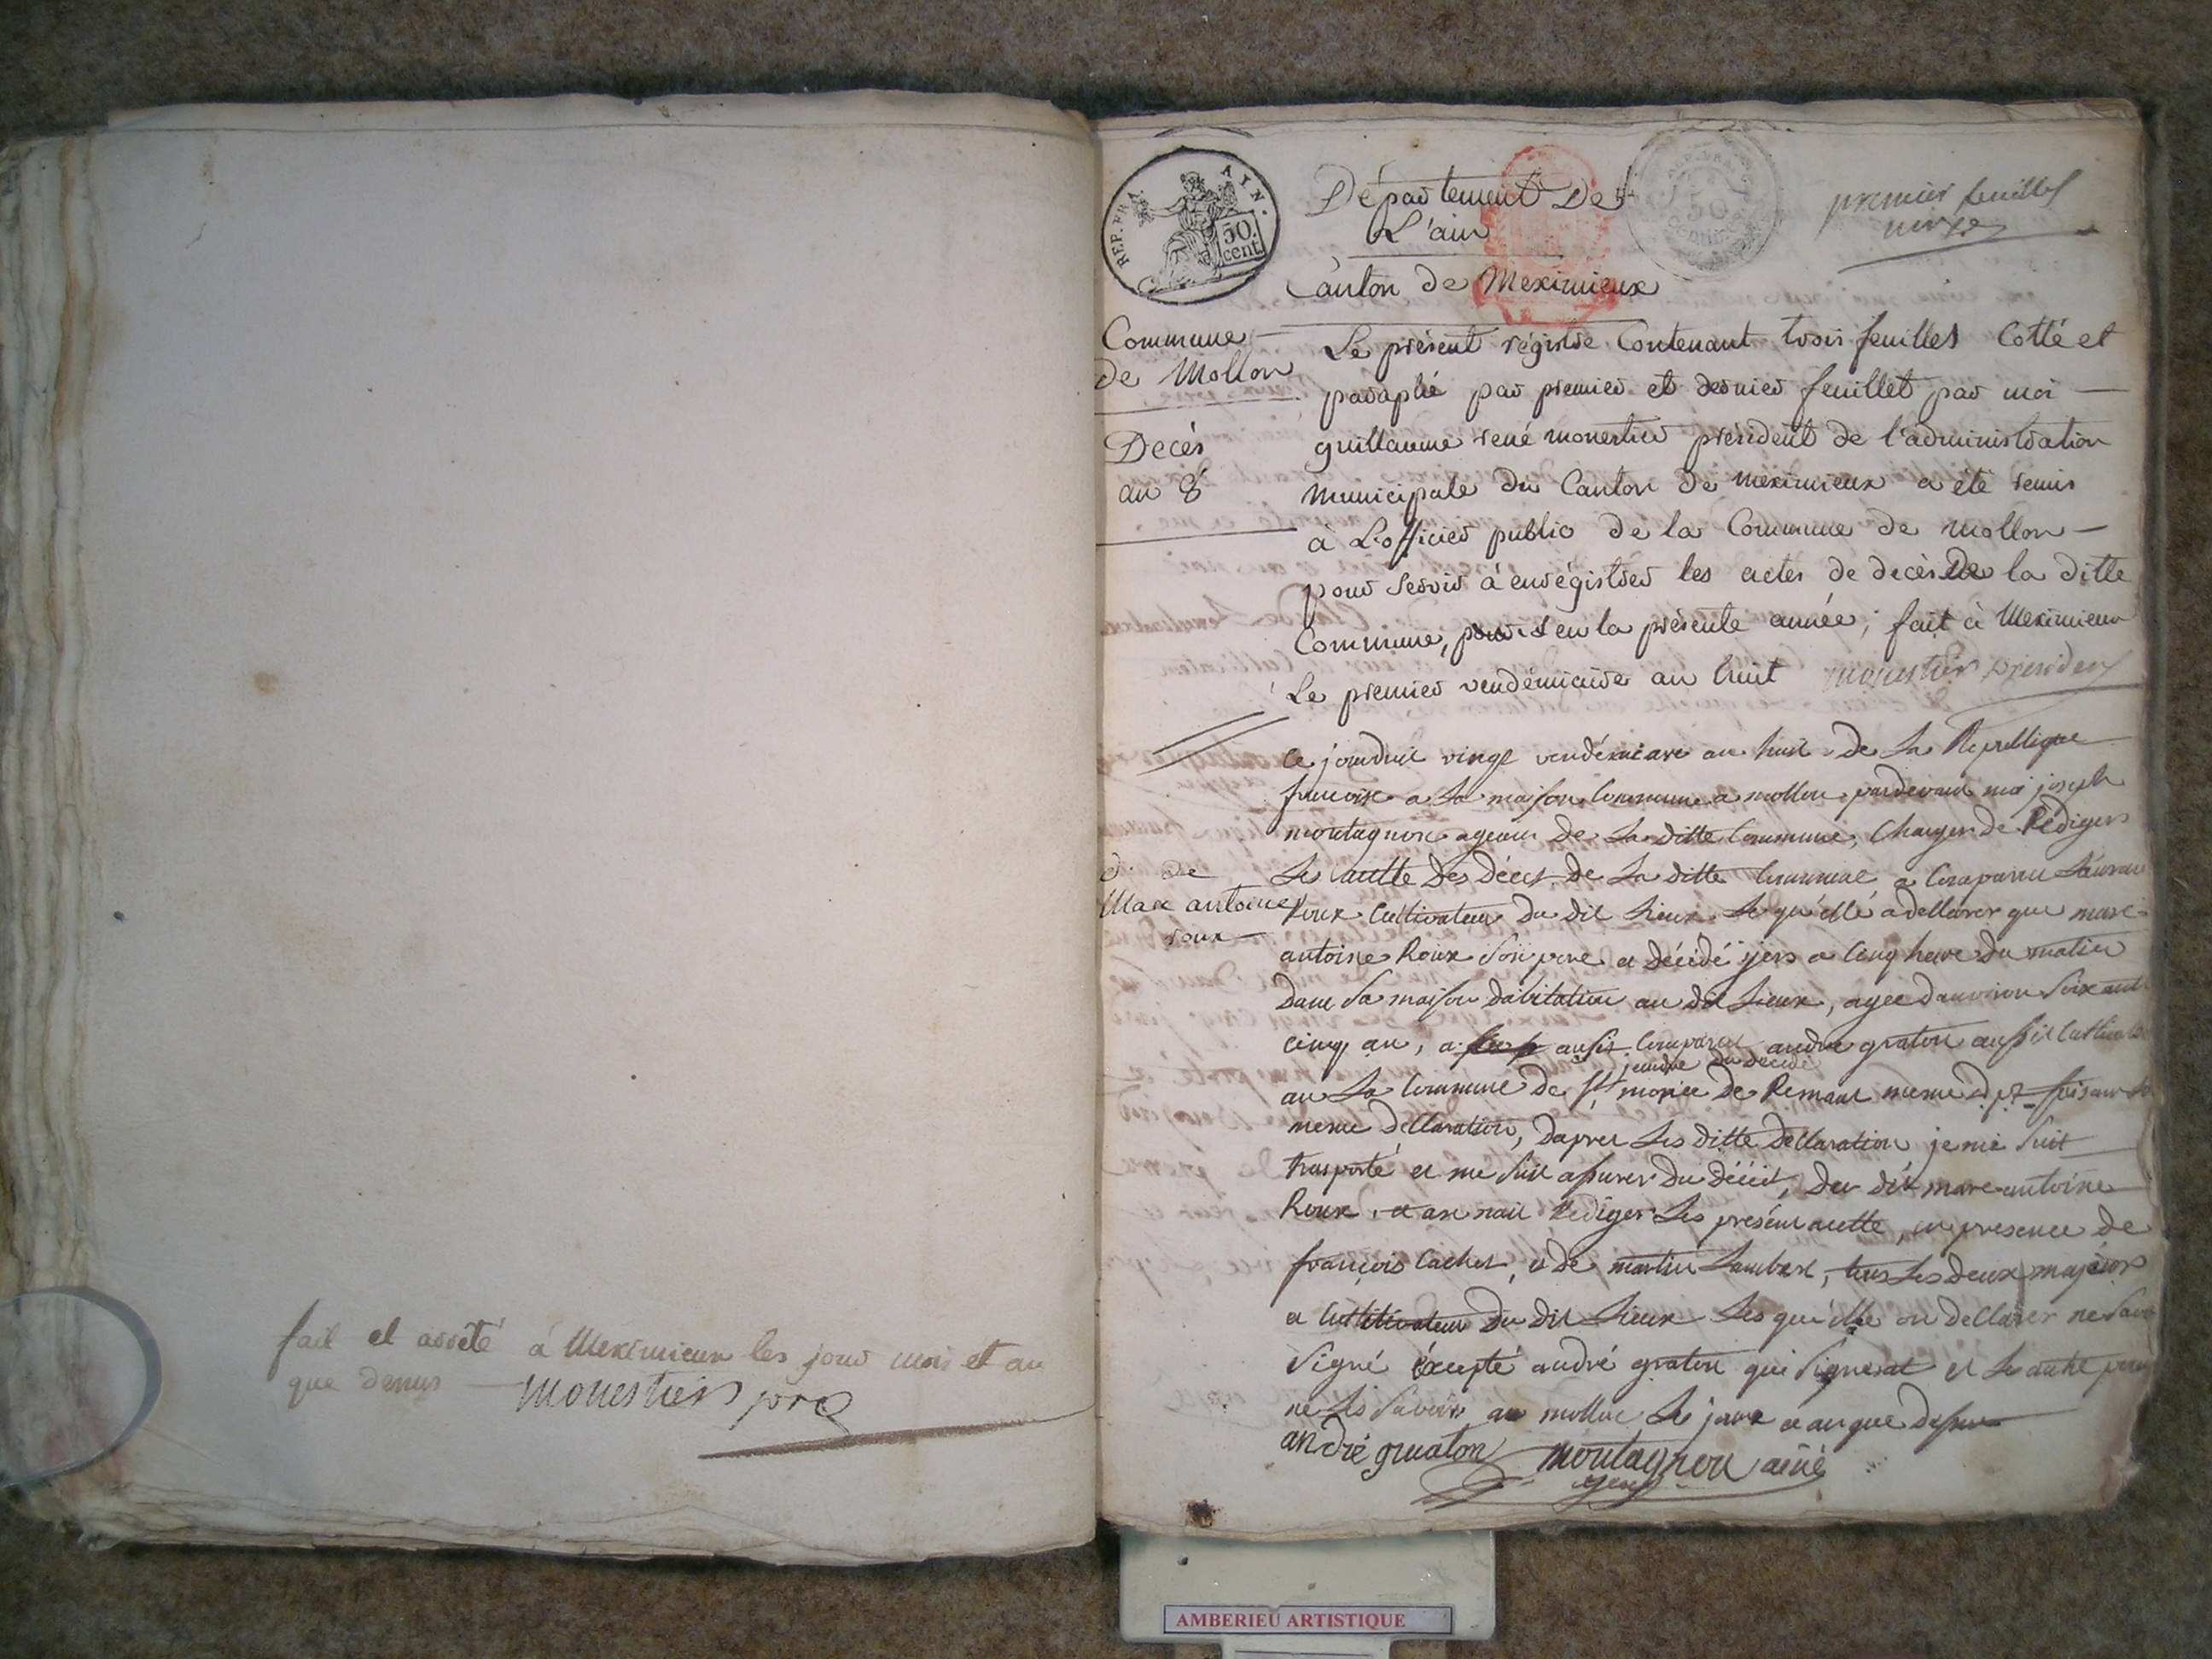 fait et arrêté à Meximieux les jour mois et an
que dessus Monestier
REP. FRA. AIN.
50.
cent.
Département De
L'ain
Canton de Meximieux
premier feuillet
Commune
de Mollon
Décès
an 8
Le présent régistre Contenant trois feuilles Cotté et
paraphé par premier et dernier feuillet par moi
guillaume rené monestier président de l'administration
municipale du Canton de meximieux a été remis
à L'officier public de la Commune de mollon
pour servir à enrégistrer les actes de decès De la ditte
Commune, en la présente année; fait à Meximieux
Le premier vendémiaire an huit monestier president
Ce jourdhuit vingt vendémiare an huit de La Republique
a La maison Commune a mollon pardevant moi joseph
montagnon agent De La ditte Commune, Charger de Rédiger
Les acttte Des Décet De La ditte Commune, a Comparru
D. de
Marc antoine
roux
Roux Cultivateur Du dit Lieux Le qu'elle a dellarer que marc
antoine Roux son pere a décédé yers a Cinq heure Du matin
Dans Sa maison Dabitation au dit Lieux, agee danviron Soixante
Cinq an, a aussit Comparut andre graton aussit
jendre du décédé
an La Commune de St morice De Remant meme
meme Dellaration, Daprer Les ditte Dellaration je me Suit
trasporté et me Suit assurer Du décét, Du dit marc antoine
Roux, et an nait Rediger Les présent actte, en presence de
françois Cachet, et de martin Lambert, tous Les deux majeurs
et Cultivateur Du dit Lieux Les qu'elle on dellarer ne Savoir
Signé éxcepté andré graton qui Signerat et Le autre pour
ne Les Savoir au mollon Le jour et an que dessus
andré gruaton montagnon ainé
agent
AMBERIEU ARTISTIQUE